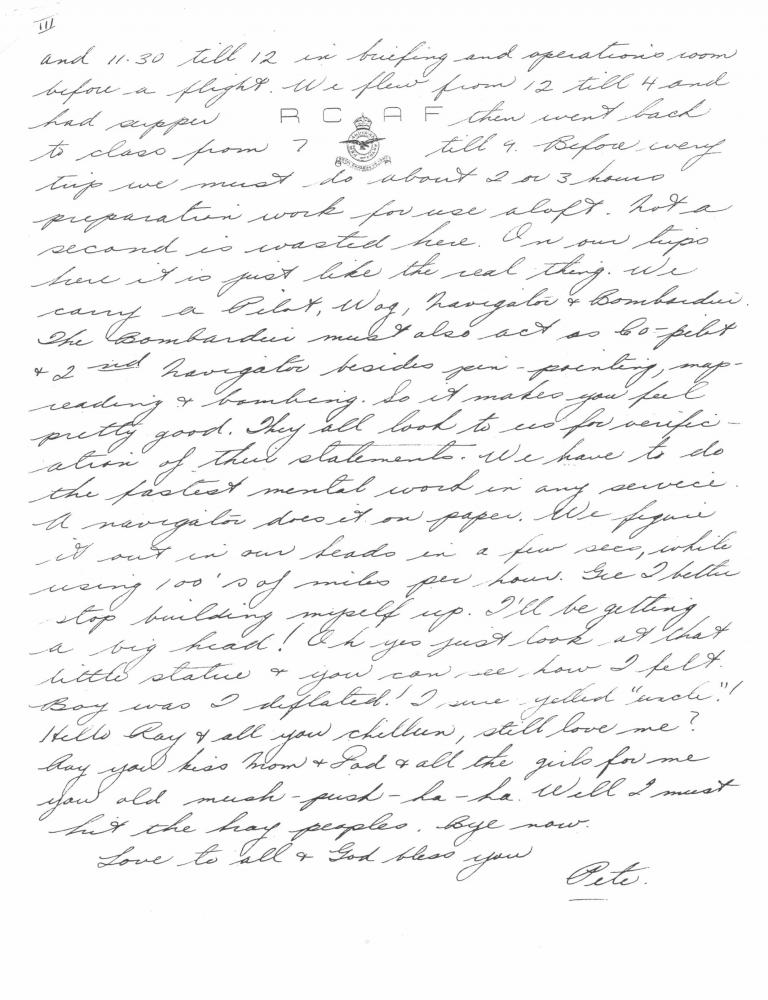 III
and 11.30 till 12 in briefing and operations room
before a flight. We flew from 12 till 4 and
had supper RCAF then went back
to class from 7 till 9. Before every
trip we must do about 2 or 3 hours
preparation work for use aloft. Not a
second is wasted here. On our trips
here it is just like the real thing. We
carry a Pilot, Wag, Navigator & Bombardier.
The Bombardier must also act as Co-pilot
& 2nd Navigator besides pin-pointing, map-
reading & bombing. So it makes you feel
pretty good. They all look to us for verific-
ation of their statements. We have to do
the fastest mental work in any service.
A navigator does it on paper. We figure
it out in our heads in a few secs, while
using 100's of miles per hour. Gee I better
stop building myself up. I'll be getting
a big head! Oh yes just look at that
little statue & you can see how I felt.
Boy was I deflated! I sure yelled "uncle"!
Hello Ray & all you chillun, still love me?
Ray you kiss Mom & Dad & all the girls for me
you old mush-push-ha-ha. Well I must
hit the hay peoples. Bye now.
Love to all & God bless you
Pete.